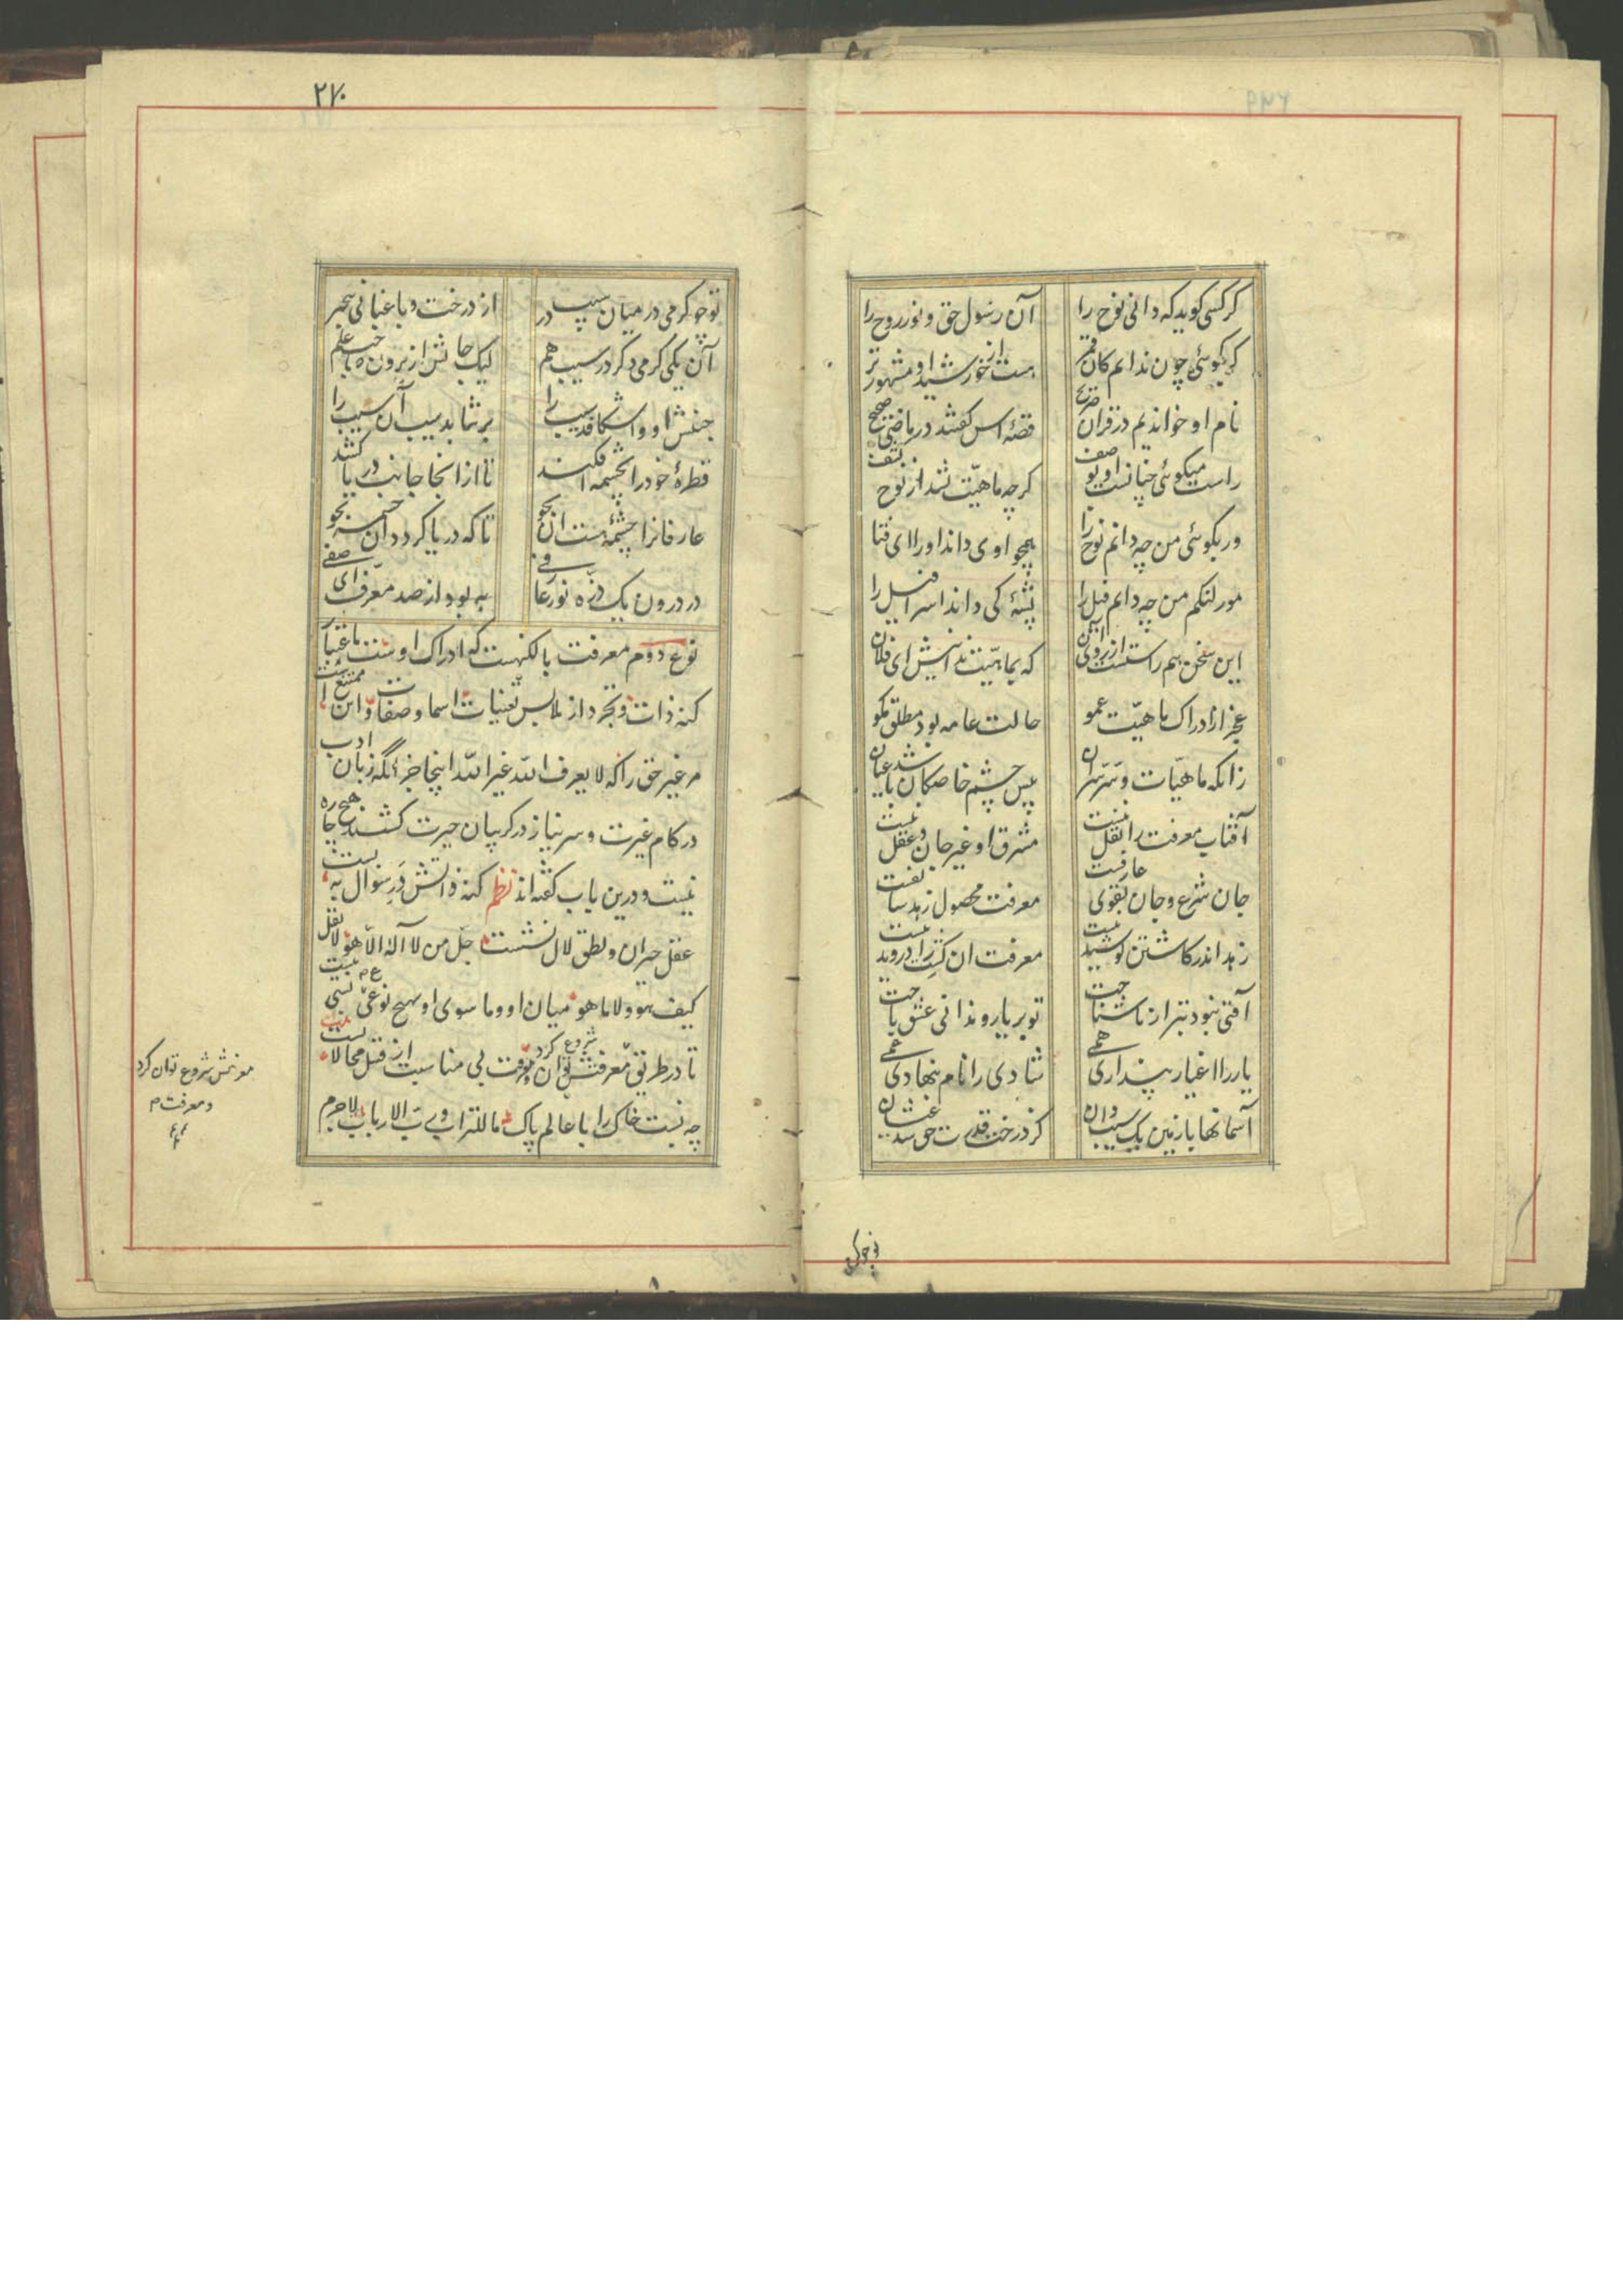 گر کسی گوید که دانی نوح را   آن رسول حق و نور روح را
گر بگوئی چون ندانم کان قمر   هست از خورشید او مشهورتر
نام او خواندیم در قران صریح   قصهٔ اس گفتند در ماضی صحیح
راست میگوئی چنانست او بوصف   گرچه ماهیت نشد از نوح کشف
ور بگوئی من چه دانم نوح را   همچو اوی داند او را ای فتا
مور لنگم من چه دانم فیل را   پشهٔ کی داند اسرافیل را
این سخن هم راستست از روی آن   که بماهیت ندانیش ای فلان
عجز از ادراک ماهیت عمو   حالت عامه بود مطلق مگو
زانکه ماهیات و سر سر آن   پیش چشم خاصگان باشد عیان
آفتاب معرفت را نقل نیست   مشرق او غیر جان و عقل نیست
جان شرع و جان تقوی عارفست   معرفت محصول زهد سالفست
زهد اندر کاشتن کوشیدنیست   معرفت ان کشت را روییدنیست
آفتی نبود بتر از ناشناخت   تو بر یار و ندانی عشق باخت
یار را اغیار پنداری همی   شادی را نام بنهادی غمی
آسمانها با زمین یک سیب دان   کز درخت قدرت حق شد عیان
۲۷۰
تو چو کرمی در میان سیب در   از درخت و باغبانی بیخبر
آن یکی کرمی دگر در سیب هم   لیک جانش از برون صاحب علم
جنبش او واشکافد سیب را   برنتابد سیب آن آسیب را
قطرهٔ خود را بچشمه افکند   تا از انجا جانب دریا کشد
عارفانرا چشمهٔ هست ان بجو   تا که دریا گردد آن چشمه بجو
در درون یک ذره نور عارفی   به بود از صد معرف ای صفی
نوع دوم معرفت بالکنهست که ادراک اوست باعتبار
کنه ذات و تجرد از ملابس تعنیات اسما و صفات و این ممتنع است
مر غیر حق را که لا یعرف الله غیر الله اینجا جز انکه زبان ادب
در کام غیرت و سر نیاز در گریبان حیرت کشند هیچ چاره
نیست و درین باب گفته اند نظم کنه ذاتش در سوال به بست
عقل حیران و نطق لال نشست جل من لا آله الا هو لا نقل
کیف هو و لا ما هو میان او و ما سوی او بهیچ نوعی نسبتی نیست
تا در طریق معرفتش توان شروع کرد و معرفت بی مناسبت از قبیل محالاتست
چه نسبت خاک را با عالم پاک ما للتراب و رب الارباب لاجرم
معرفتش شروع توان کرد
و معرفت م